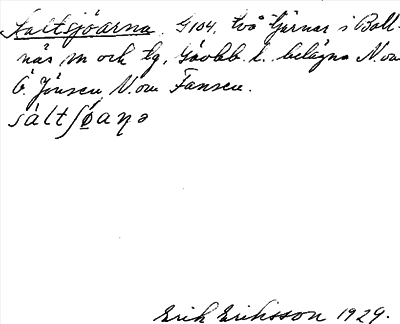 Saltsjöarna. G104. två tjärnar i Boll-
näs m och tg, Gävlb. l. belägna N. om
Ö. Jönsen V. om Fansen.
sàltʃøaṇə
Erik Eriksson 1929.